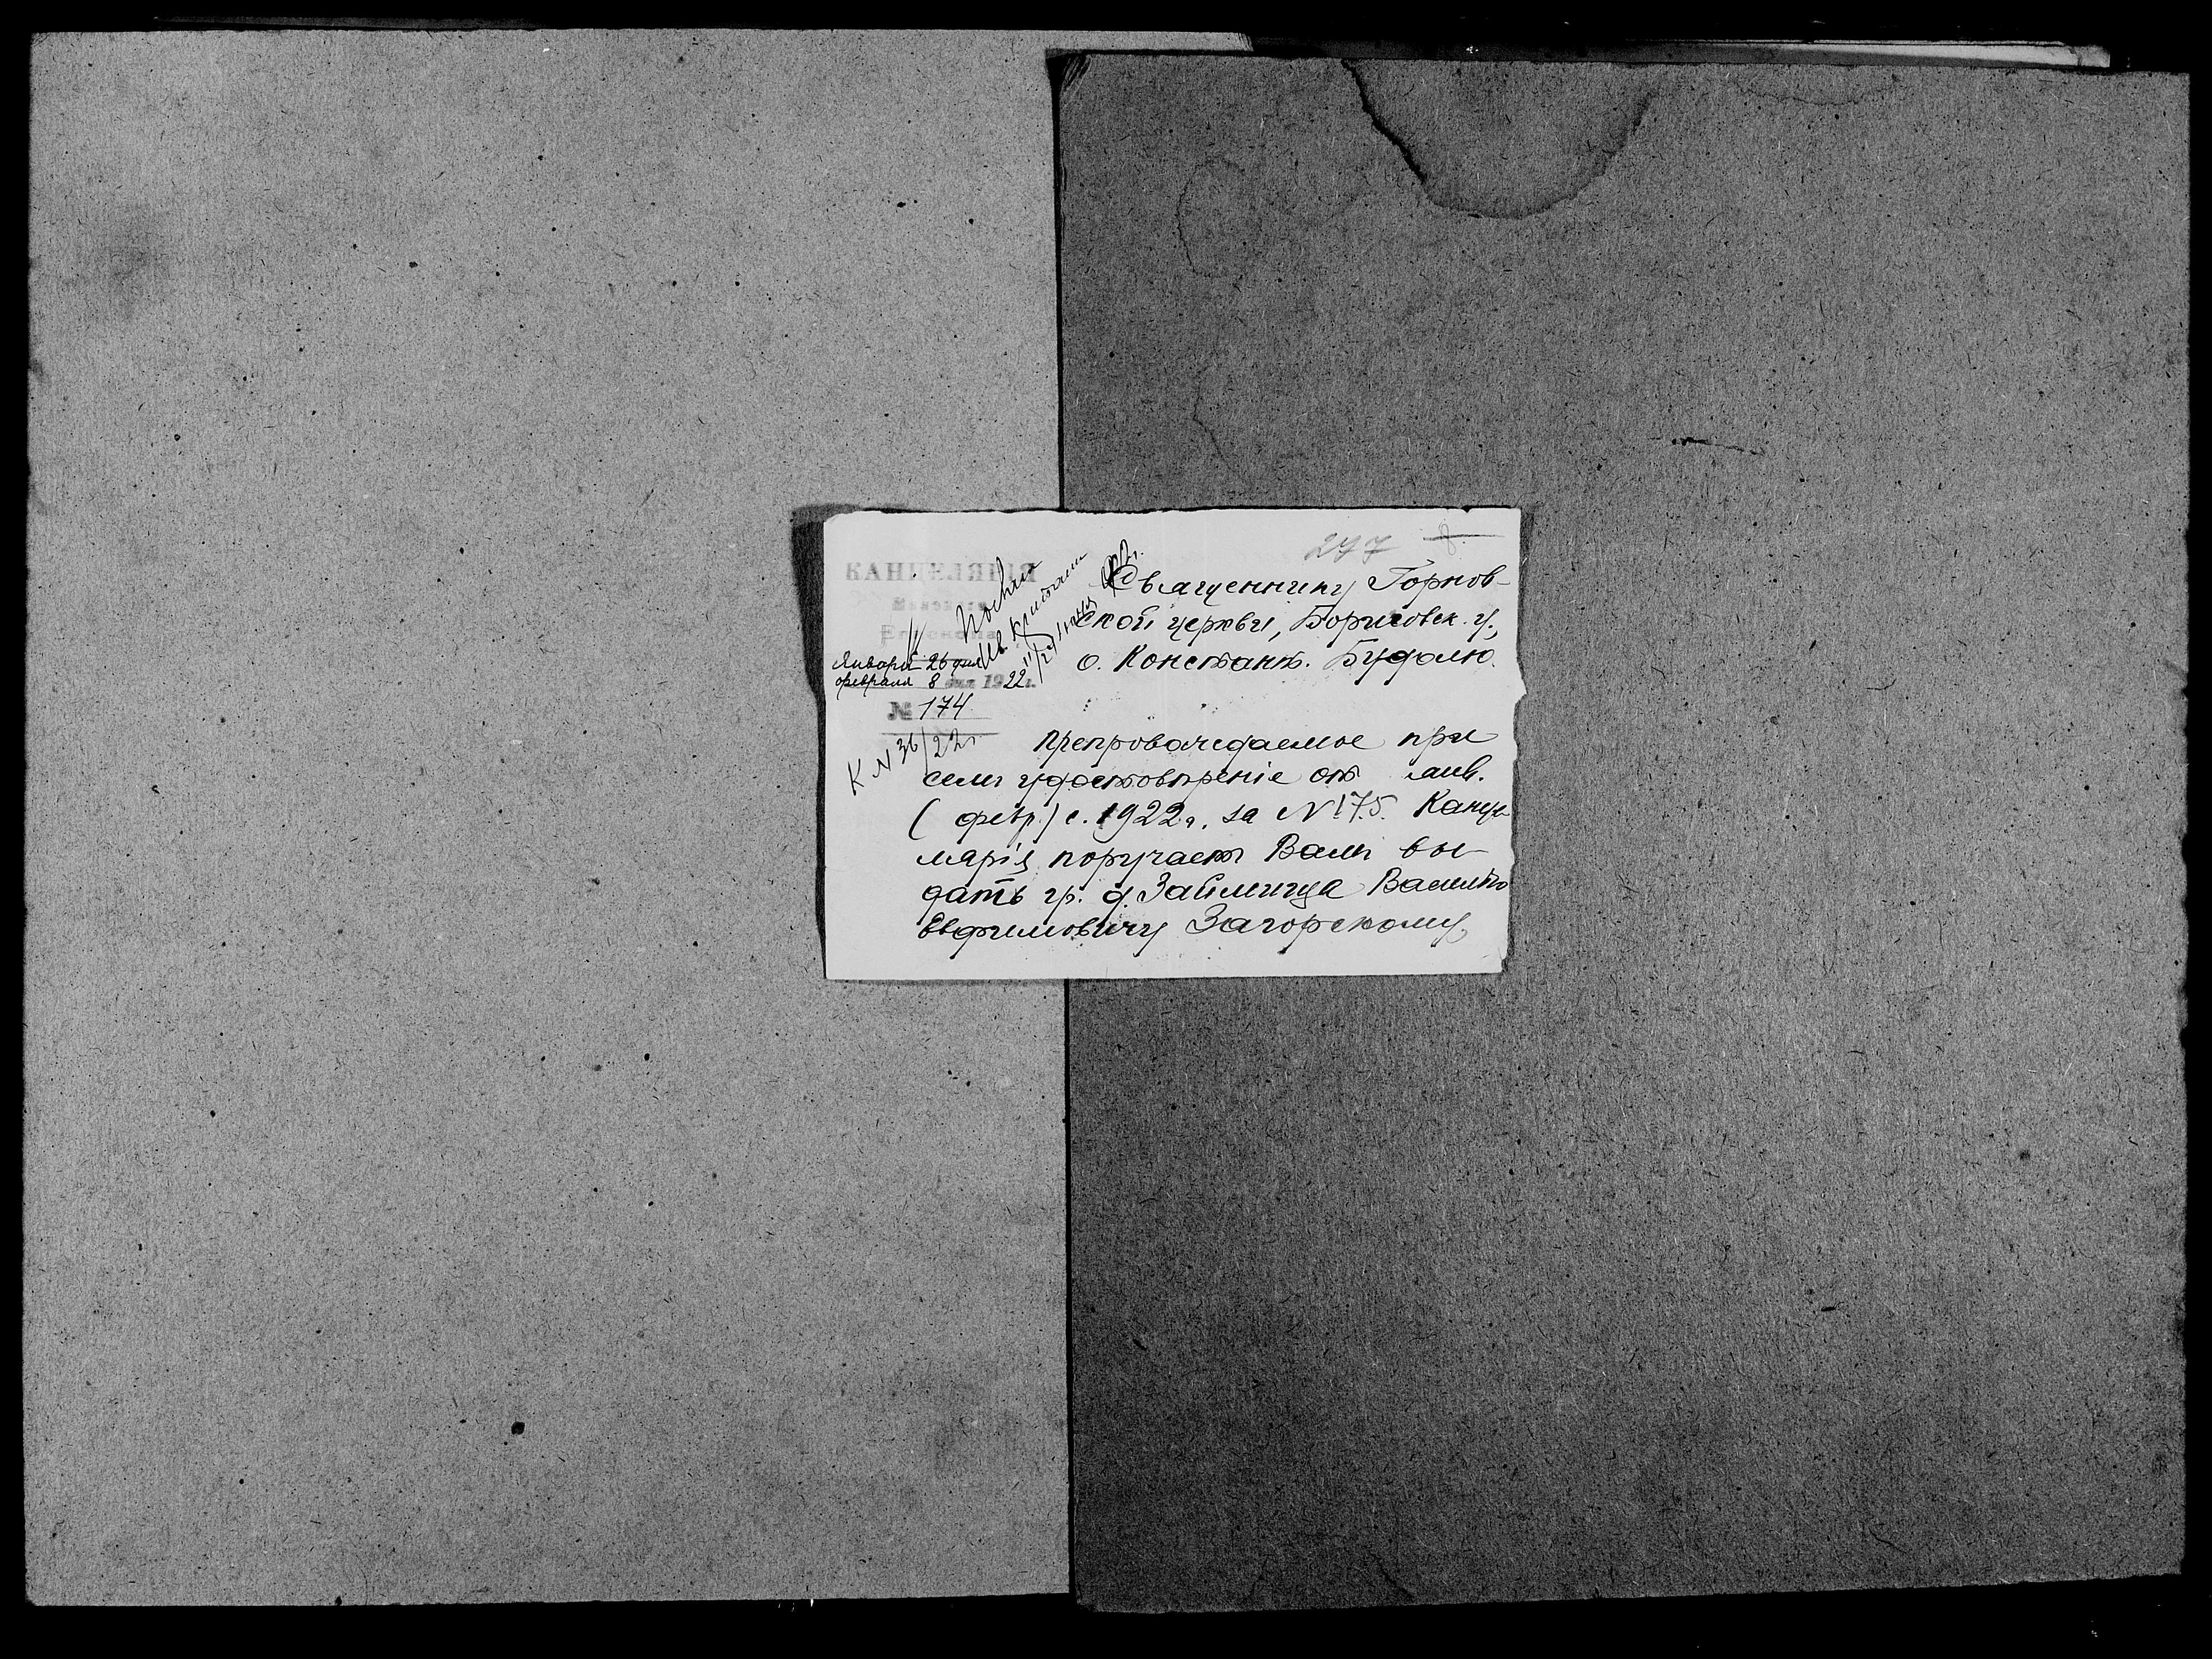 277
КАНЦЕЛЯРІЯ
Епископа
Января 26 дня
февраля 8 дня 1922 г.
№ 174
К N 36/22 г.
Священнику Горнов-
ской церкви, Борисовск. у.,
о. Констант. Будалю.
Препровождаемое при
семъ удостовѣреніе отъ янв.
(февр.) с. 1922 г. за N 175. Канце
лярія поручаетъ Вамъ вы-
дать гр. д. Займища
Евфимовичу Загорскому,